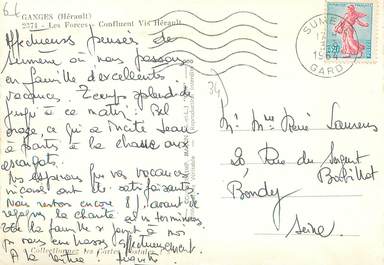 GANGES (Hérault)
2374 - Les Forces - Confluent Vis Hérault
Affectueuses pensées de
Sumène où nous passons
en famille d'excellentes
vacances. Temps splendide
jusqu'à ce matin. Bel
orage, ce qui a incité Jean
à partir à la chasse aux
escargots.
Nous espérons que vos vacances
niçoises ont été satisfaisantes.
Nous restons encore 8 j. avant de
regagner la
Toute la famille se joint à moi
pr vous embrasser affectueusement.
A la vôtre!
Collectionnez les Cartes Postales
SUMENE
1964
GARD
34
Mr Mme René Laurens
28 Rue du Sergent
Bobillot
Bondy
Seine